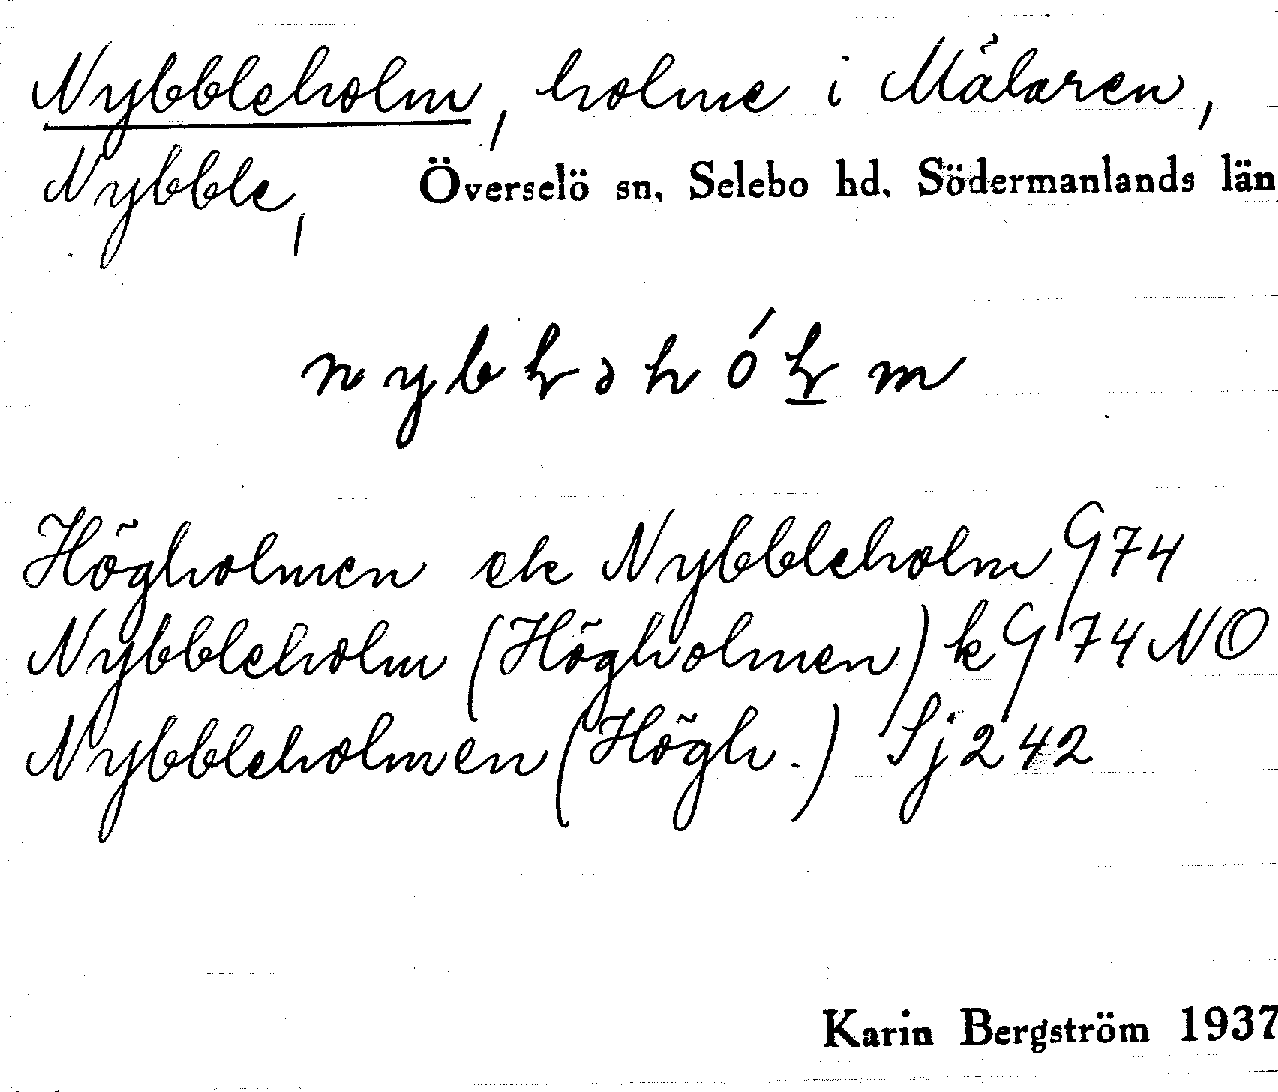 Nybbleholm, holme i Mälaren,
Nybble, Överselö sn, Selebo hd, Södermanlands län
Högholmen ek Nybbleholm G74
Nybbleholm (Högholmen) k G 74 NO
Nybbleholmen (Högh.) Sj 242
Karin Bergström 1937